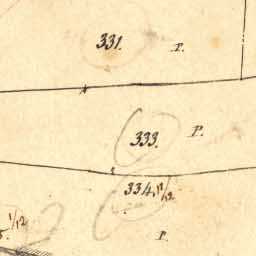 331. P.
333. P.
334. 1/2
1/12
P.